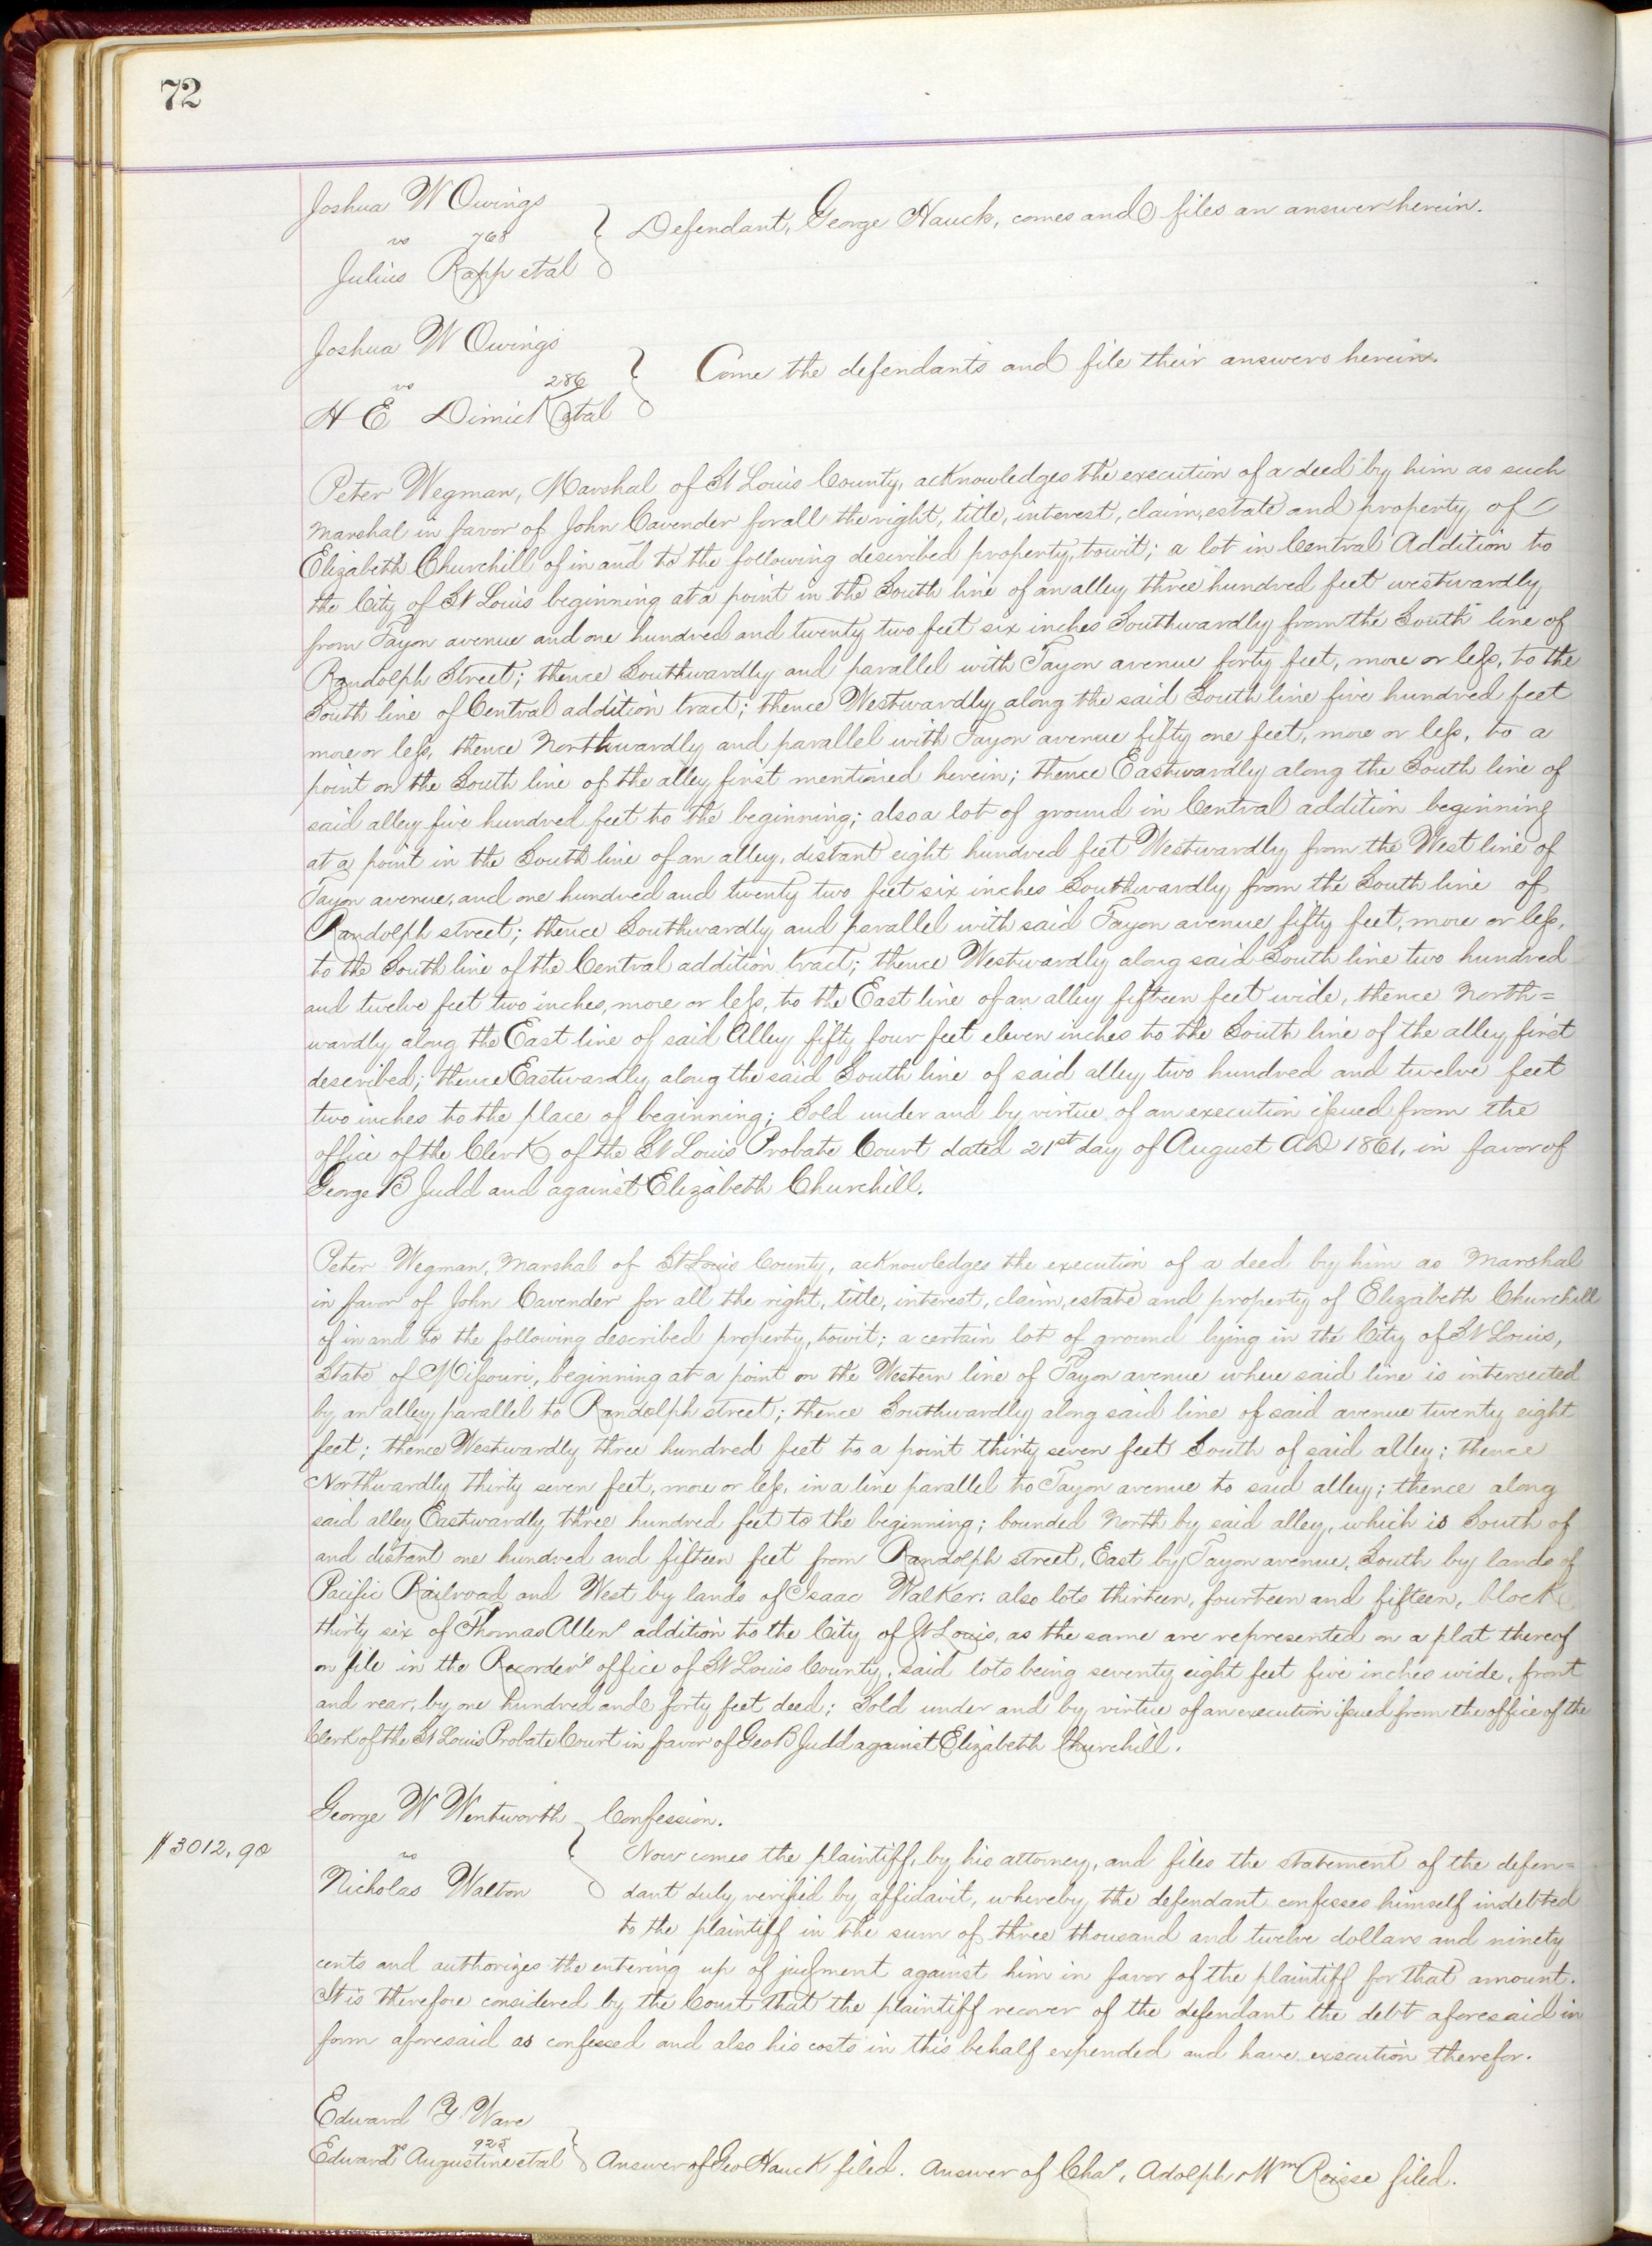 72
Joshua W Owings
vs 768
Julius Rapp etal
Defendant, George Hauck, comes and files an answer herein.
Joshua W Owings
vs 286
H E Dimick etal
Come the defendants and file their answers herein.
Peter Wegman, Marshal of St Louis County, acknowledges the execution of a deed by him as such
Marshal in favor of John Cavender for all the right, title, interest, claim, estate and property of
Elizabeth Churchill of in and to the following described property, towit; a lot in Central Addition to
the City of St Louis beginning at a point in the South line of an alley three hundred feet westwardly
from Tayon avenue and one hundred and twenty two feet six inches Southwardly from the South line of
Randolph Street; thence Southwardly and parallel with Tayon avenue forty feet, more or less, to the
South line of Central addition tract; thence Westwardly along the said South line five hundred feet
more or less, thence Northwardly and parallel with Tayon avenue fifty one feet, more or less, to a
point on the South line of the alley first mentioned herein; thence Eastwardly along the South line of
said alley five hundred feet to the beginning; also a lot of ground in Central addition beginning
at a point in the South line of an alley, distant eight hundred feet Westwardly from the West line of
Tayon avenue, and one hundred and twenty two feet six inches Southwardly from the South line of
Randolph street; thence Southwardly and parallel with said Tayon avenue fifty feet, more or less,
to the South line of the Central addition tract; thence Westwardly along said South line two hundred
and twelve feet two inches, more or less, to the East line of an alley fifteen feet wide, thence North=
wardly along the East line of said Alley fifty four feet eleven inches to the South line of the alley first
described; thence Eastwardly along the said South line of said alley two hundred and twelve feet
two inches to the place of beginning; Sold under and by virtue of an execution issued from the
office of the Clerk of the St Louis Probate Court dated 21st day of August AD 1861, in favor of
George B Judd and against Elizabeth Churchill.
Peter Wegman, Marshal of St Louis County, acknowledges the execution of a deed by him as Marshal
in favor of John Cavender for all the right, title, interest, claim, estate and property of Elizabeth Churchill
of in and to the following described property, towit; a certain lot of ground lying in the City of St Louis,
State of Missouri, beginning at a point on the Western line of Tayon avenue where said line is intersected
by an alley parallel to Randolph street; thence Southwardly along said line of said avenue twenty eight
feet; thence Westwardly three hundred feet to a point thirty seven feet South of said alley; thence
Northwardly thirty seven feet, more or less, in a line parallel to Tayon avenue to said alley; thence along
said alley Eastwardly three hundred feet to the beginning; bounded North by said alley, which is South of
and distant one hundred and fifteen feet from Randolph street, East by Tayon avenue, South by lands of
Pacific Railroad and West by lands of Isaac Walker: also lots thirteen, fourteen and fifteen, block
thirty six of Thomas Allen's addition to the City of St Louis, as the same are represented on a plat thereof
on file in the Recorder's office of St Louis County, said lots being seventy eight feet five inches wide, front
and rear, by one hundred and forty feet deed; Sold under and by virtue of an execution issued from the office of the
Clerk of the St Louis Probate Court in favor of Geo B Judd against Elizabeth Churchill.
George W Wentworth
vs
Nicholas Walton
Confession.
$3012,90
Now comes the plaintiff, by his attorney, and files the statement of the defen=
dant duly verified by affidavit, whereby the defendant confesses himself indebted
to the plaintiff in the sum of three thousand and twelve dollars and ninety
cents and authorizes the entering up of judgment against him in favor of the plaintiff for that amount.
It is therefore considered by the Court that the plaintiff recover of the defendant the debt aforesaid in
form aforesaid as confessed and also his costs in this behalf expended and have execution therefor.
Edward Y Ware
vs 925
Edward Augustine etal
Answer of Geo Hauck filed. Answer of Chas, Adolph & Wm Roisse filed.